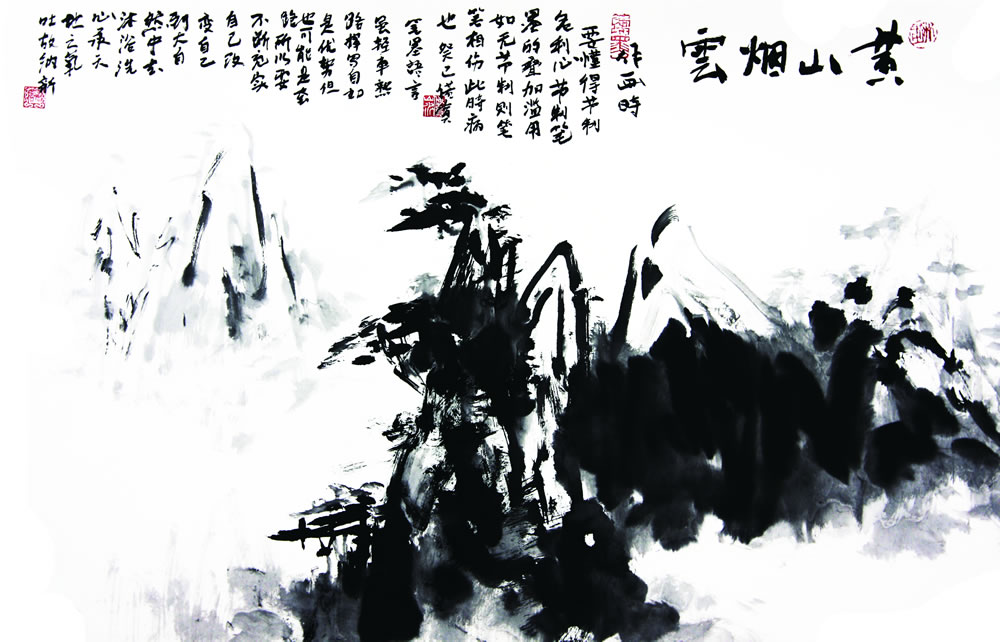 黄山烟雲
作画時
要懂得节制
利心节制笔
墨的叠加滥用
如无节制则笔
笔相伤此时病
也 癸巳
笔墨语言
虽轻车熟
路挥写自如
是优势但
也可能是套
路所以要
不断充实
自己改
变自己
到大自
然中去
沐浴洗
心承天
地之氣
吐故纳新